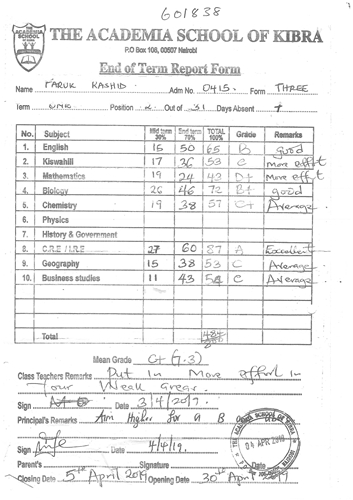 601838
THE ACADEMIA SCHOOL OF KIBRA
P.O Box 108, 00507 Nairobi
End of Term Report Form
Name FARUK RASHID Adm No. 0415 Form THREE
Term ONE Position 2 Out of 31 Days Absent
No. Subject Mid term 30% End term 70% TOTAL 100% Grade Remarks
1. English 15 50 65 B good
2. Kiswahili 17 36 53 C More effort
3. Mathematics 19 24 43 D+ More effort
4. Biology 26 46 72 B+ good
5. Chemistry 19 38 57 C+ Average
6. Physics
7. History & Government
8. C.R.E / I.R.E 27 60 87 A Excellent
9. Geography 15 38 53 C Average
10. Business studies 11 43 54 C Average
Total
Mean Grade C+ (7.3)
Class Teachers Remarks Put In More effort in
Your Weak Areas.
Sign Date 3/4/2019.
Principal's Remarks Aim Higher for a B
Sign Date 4/4/19.
04 APR 2019
Parent's Signature Date
Closing Date 5th April 2019 Opening Date 30th April 2019